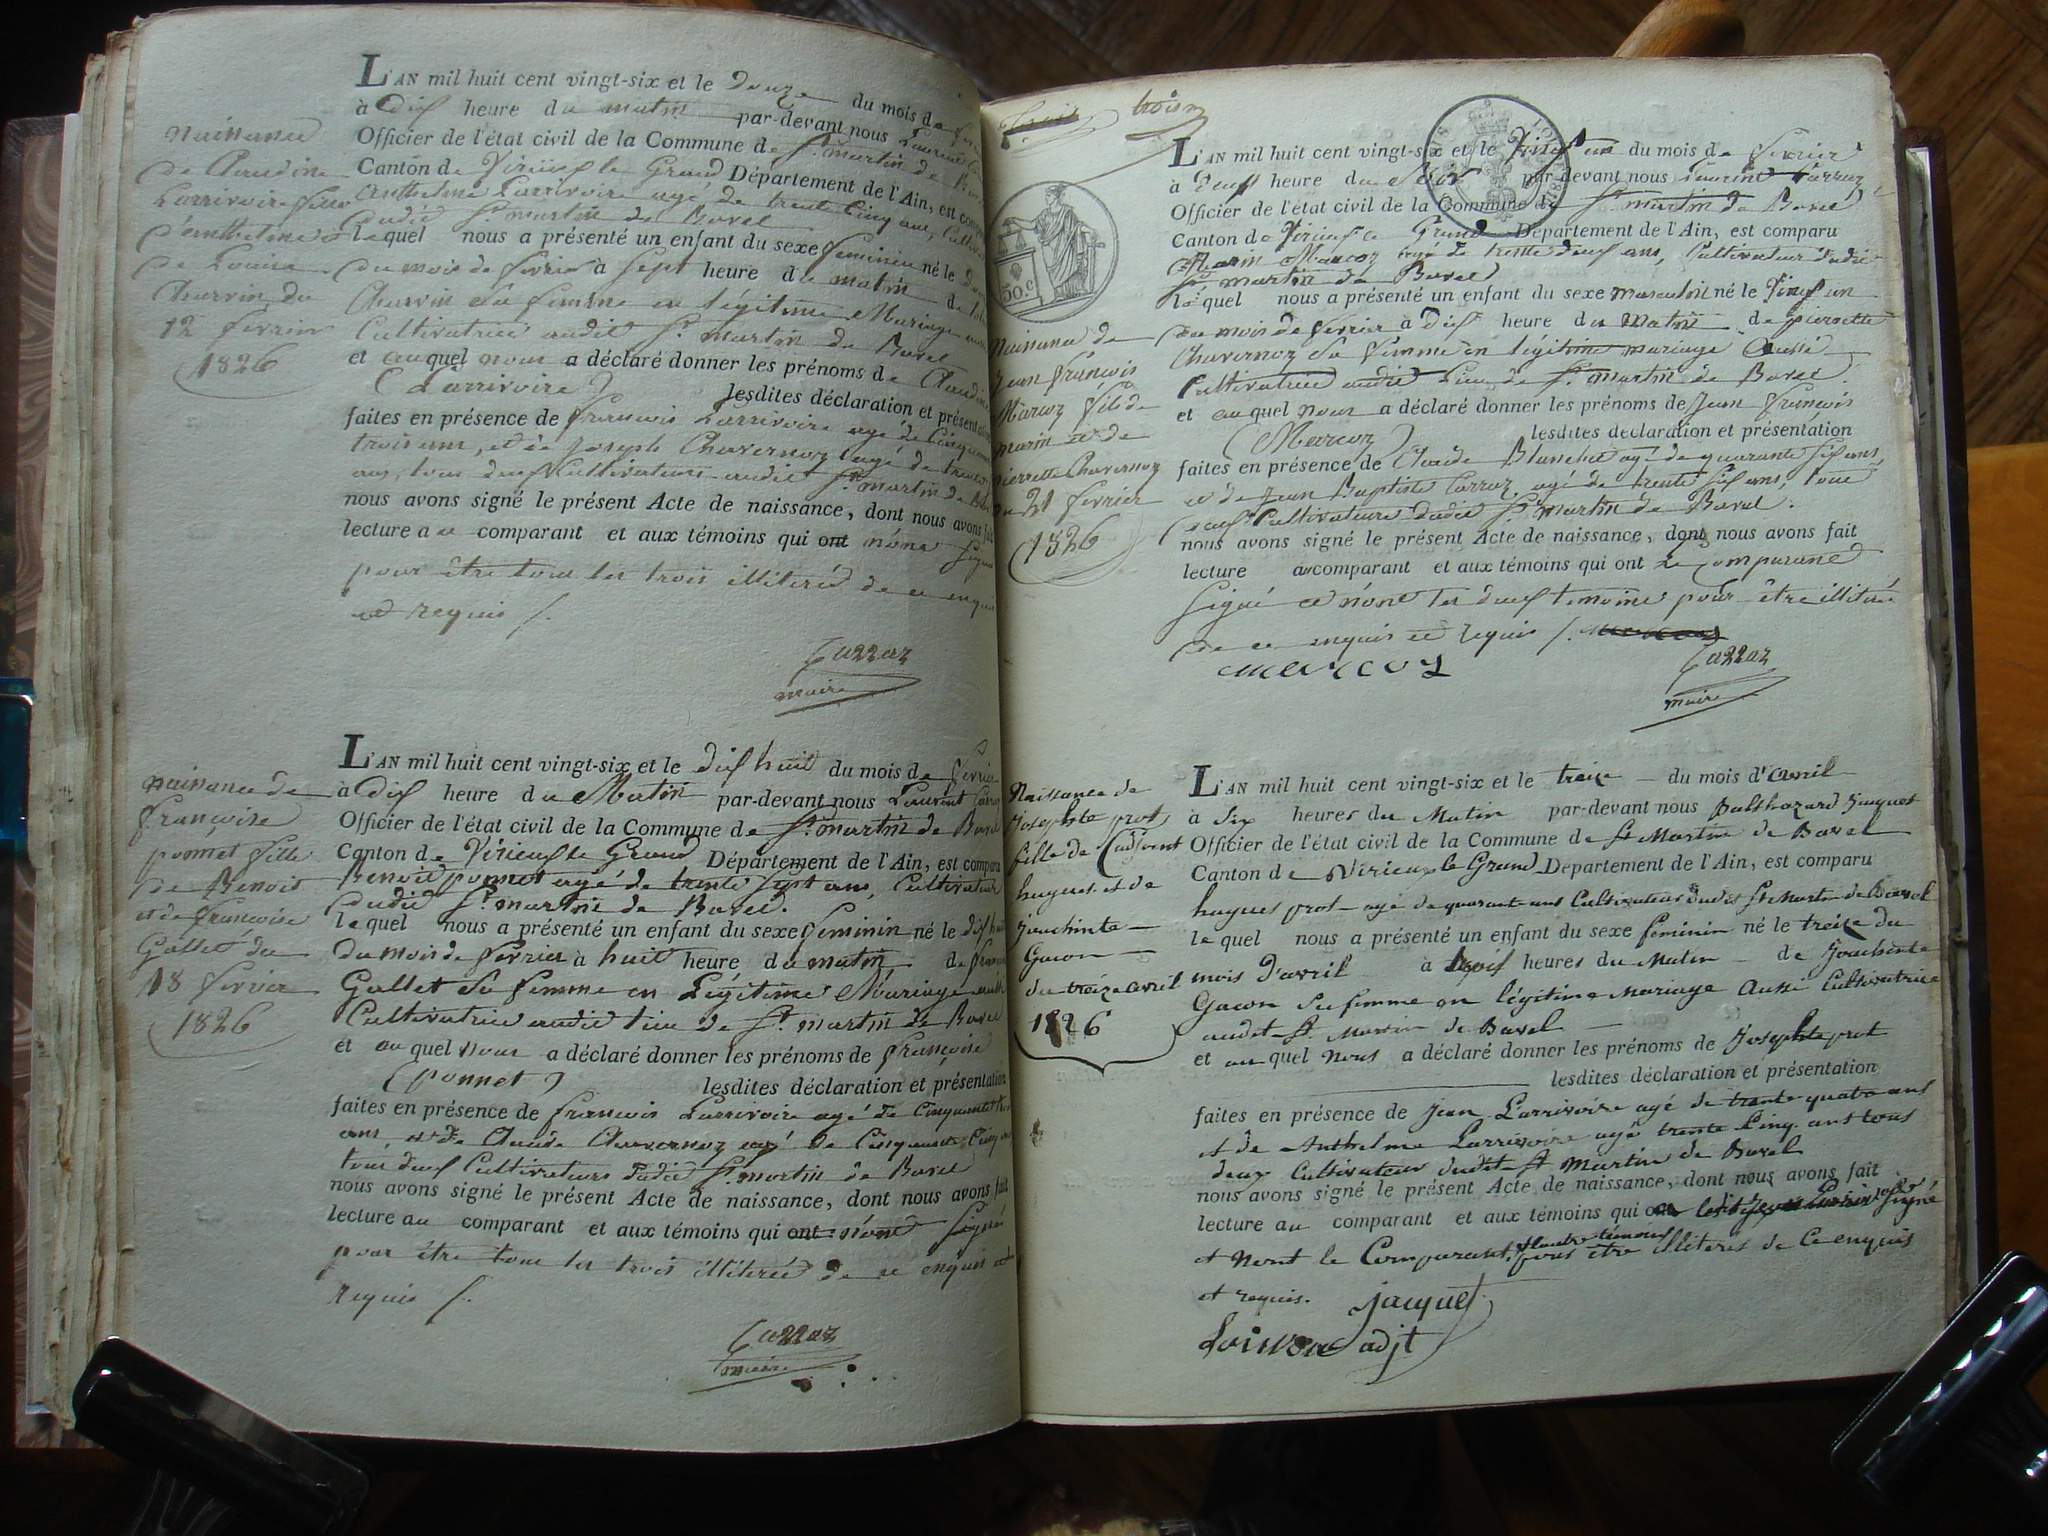 L'AN mil huit cent vingt-six et le Douze du mois de
à Dix heure du matin par-devant nous Laurent
Officier de l'état civil de la Commune de St martin de
Canton de Virieux le Grand Département de l'Ain, est
Anthelme Larrivoire agé de trente Cinq ans,
dudit St martin de Bavel
lequel nous a présenté un enfant du sexe feminin né le
du mois de fevrier à Sept heure du matin de
Charvin sa femme en légitime Mariage
Cultivatrice audit St martin de Bavel
et auquel nous a déclaré donner les prénoms de Claudine
(Larrivoire) lesdites déclaration et
faites en présence de francois Larrivoire agé de
trois ans, et de Joseph Chavernoz agé de
ans, tous deux Cultivateurs audit St martin de
nous avons signé le présent Acte de naissance, dont nous avons fait
lecture au comparant et aux témoins qui ont n'ont Signé
pour être tous les trois illiterés de ce enquis
et requis /.
Carraz
maire
Naissance
de Claudine
Larrivoire fille
d'anthelme et
de Louise
Charvin du
12 fevrier
1826
L'AN mil huit cent vingt-six et le dix huit du mois de fevrier
à Dix heure du Matin par-devant nous Laurent
Officier de l'état civil de la Commune de St martin de Bavel
Canton de Virieux le Grand Département de l'Ain, est comparu
Benoit ponnet agé de trente Sept ans, Cultivateur
dudit St martin de Bavel.
lequel nous a présenté un enfant du sexe feminin né le dix huit
du mois de fevrier à huit heure du matin de
Gallet sa femme en Légitime Mariage
Cultivatrice audit lieu de St martin de Bavel
et auquel nous a déclaré donner les prénoms de françoise
(ponnet) lesdites déclaration et présentation
faites en présence de francois Larrivoire agé de Cinquante
ans, et de Claude Chavernoz agé de Cinquante Cinq
tous deux Cultivateurs dudit St martin de Bavel
nous avons signé le présent Acte de naissance, dont nous avons fait
lecture au comparant et aux témoins qui ont n'ont Signé
pour être tous les trois illiterés de ce enquis et
requis /.
Carraz
maire
naissance de
françoise
ponnet fille
de Benoit
et de françoise
Gallet du
18 fevrier
1826
trois
50.c
L'AN mil huit cent vingt-six et le Vingt un du mois de fevrier
à Deux heure du Soir par-devant nous Laurent Carraz
Officier de l'état civil de la Commune de St martin de Bavel
Canton de Virieux le Grand Département de l'Ain, est comparu
Marin Marcoz agé de trente deux ans, Cultivateur dudit
St martin de Bavel
lequel nous a présenté un enfant du sexe masculin né le Vingt un
du mois de fevrier à Dix heure du Matin de pierrette
Chavernoz sa femme en légitime mariage Aussi
Cultivatrice audit Lieu de St martin de Bavel.
et auquel nous a déclaré donner les prénoms de Jean françois
(Marcoz) lesdites déclaration et présentation
faites en présence de Claude Blanchet agé de quarante Six ans,
et de Jean Baptiste Carraz agé de trente Six ans, tous
deux Cultivateurs dudit St martin de Bavel.
nous avons signé le présent Acte de naissance, dont nous avons fait
lecture au comparant et aux témoins qui ont Le Comparant
Signé et n'ont les deux temoins pour être illiterés
de ce enquis et requis /.
marcoz
Carraz
maire
Naissance de
Jean françois
Marcoz fils de
marin et de
pierrette Chavernoz
du 21 fevrier
1826
L'AN mil huit cent vingt-six et le treize du mois d'avril
à Six heures du Matin par-devant nous Balthazard Jacquet
Officier de l'état civil de la Commune de St Martin de Bavel
Canton de Virieux le Grand Département de l'Ain, est comparu
hugues prot agé de quarant ans Cultivateur dudit St Martin de Bavel
lequel nous a présenté un enfant du sexe feminin né le treize du
mois d'avril à trois heures du Matin de Jouchinte
Gacon sa femme en légitime Mariage Aussi Cultivatrice
audit St Martin de Bavel
et auquel Nous a déclaré donner les prénoms de Josephte prot
lesdites déclaration et présentation
faites en présence de Jean Larrivoire agé de trante quatre ans
et de Anthelme Larrivoire agé trente Cinq ans tous
deux Cultivateur dudit St Martin de Bavel
nous avons signé le présent Acte de naissance, dont nous avons fait
lecture au comparant et aux témoins qui ont Signé
et Nont le Comparant, et lautre témoins pour être illiterés de Ce enquis
et requis.
Jacquet
adjt
Naissance de
Josephte prot
fille de
hugues et de
Jouchinte
Gacon
du treize avril
1826